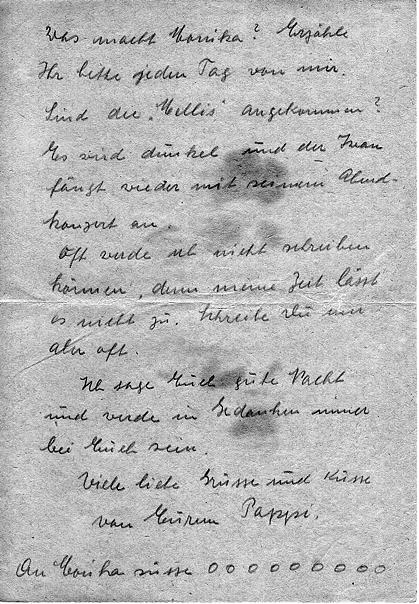 Was macht Monika? Erzähle
Ihr bitte jeden Tag von mir.
Sind die "Mellis" angekommen?
Es wird dunkel und der Iwan
fängt wieder mit seinem Abend-
konzert an.
Oft werde ich nicht schreiben
können, denn meine Zeit lässt
es nicht zu. Schreibe Du mir
aber oft.
Ich sage Euch gute Nacht
und werde in Gedanken immer
bei Euch sein.
Viele liebe Grüsse und Küsse
von Eurem Pappi.
An Monika süsse o o o o o o o o o o